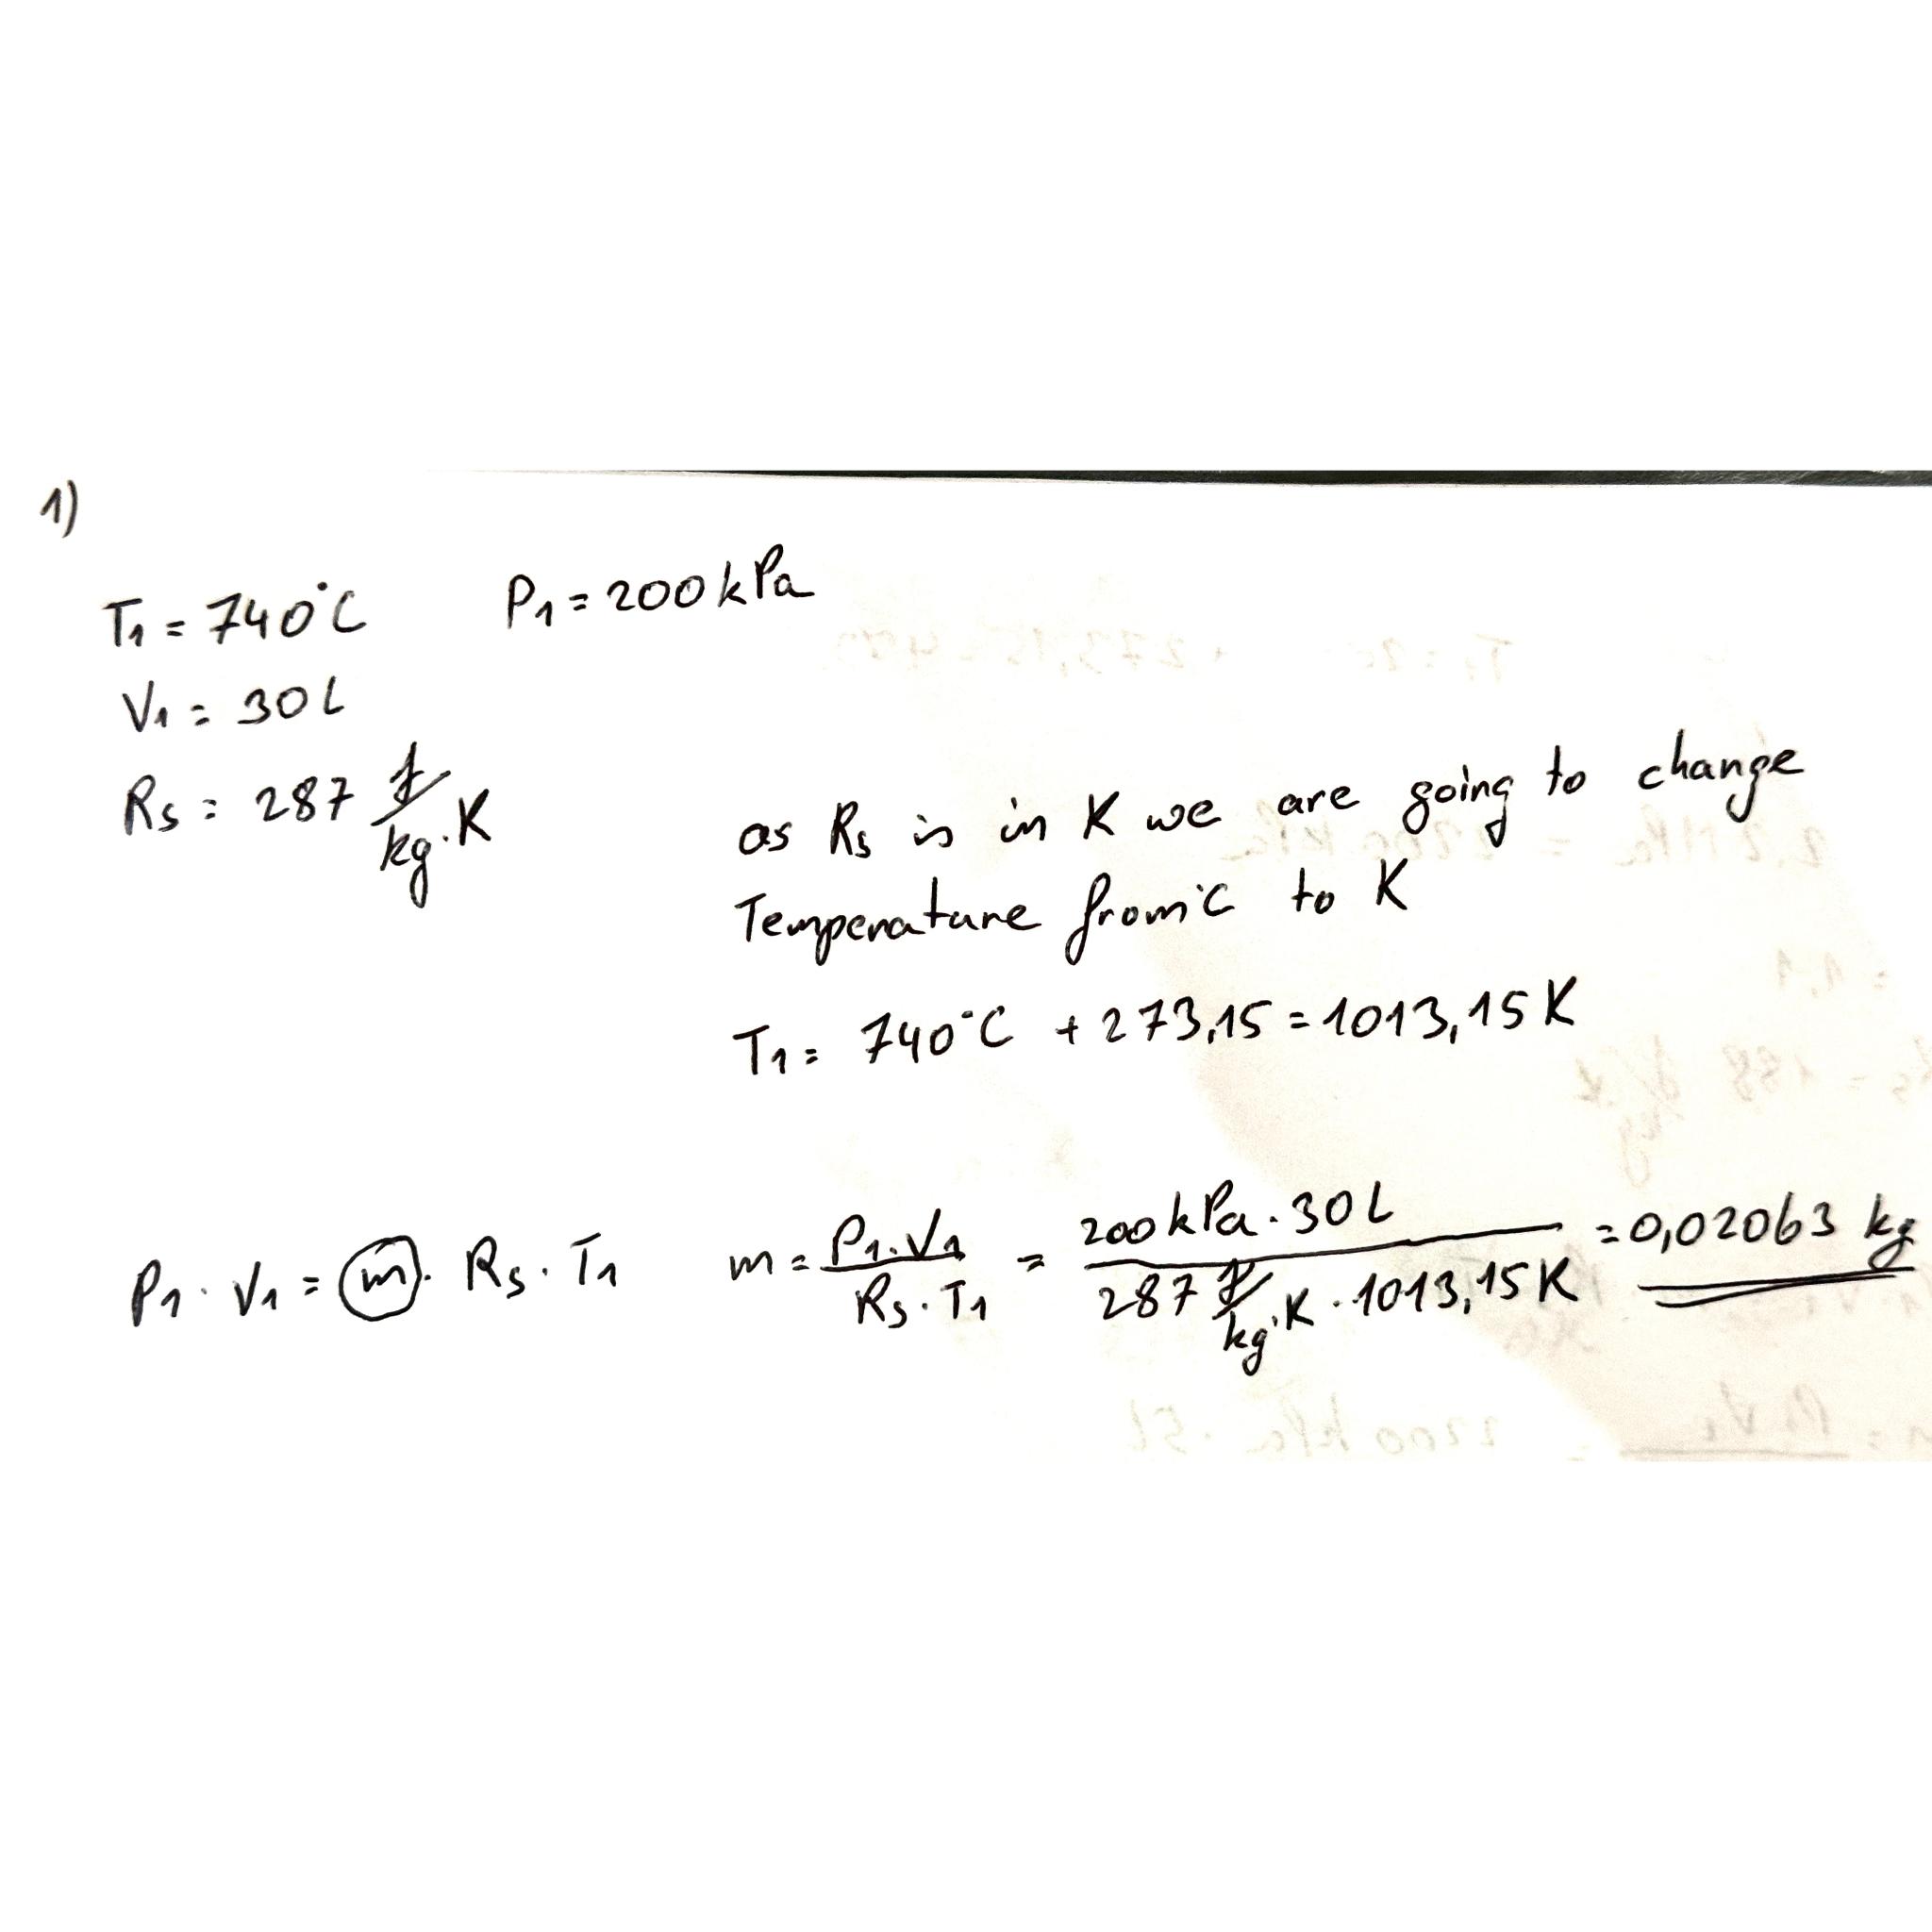 1)
T1 = 740°C P1 = 200 kPa
V1 = 30 L
Rs = 287 J/kg·K
as Rs is in K we are going to change
Temperature from °C to K
T1 = 740°C + 273,15 = 1013,15 K
P1 · V1 = m · Rs · T1 m = P1·V1 / Rs·T1 = 200 kPa · 30 L / 287 J/kg·K · 1013,15 K = 0,02063 kg